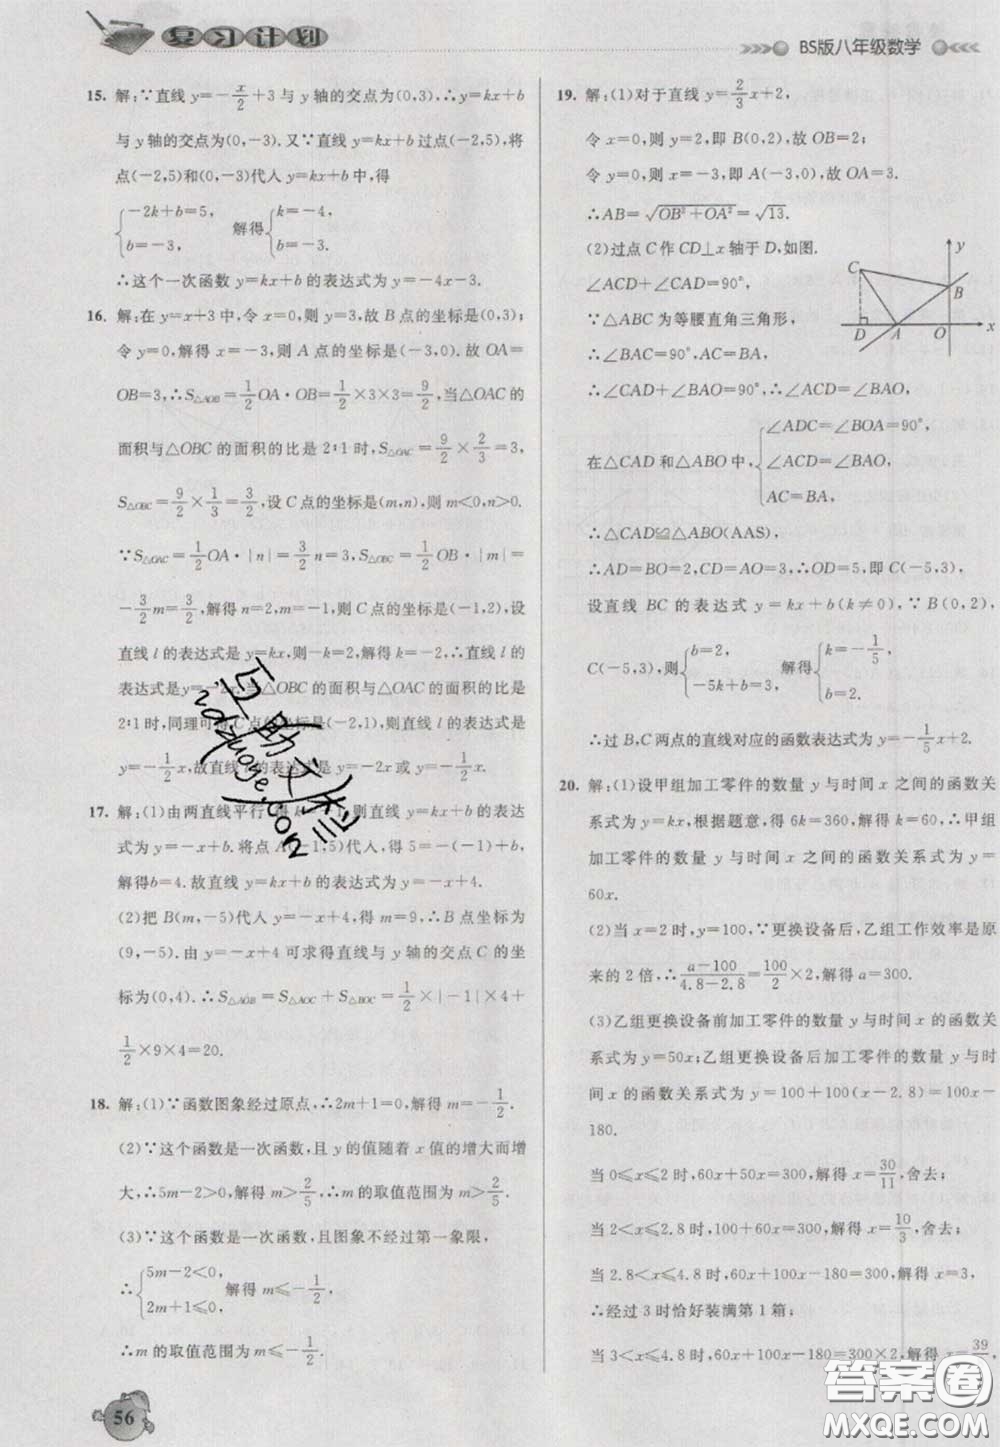 复习计划
BS版八年级数学
15. 解:∵直线 y=-x/2+3 与 y 轴的交点为(0,3).∴y=kx+b
与 y 轴的交点为(0,-3).又∵直线 y=kx+b 过点(-2,5),将
点(-2,5)和(0,-3)代人 y=kx+b 中,得
{-2k+b=5, b=-3, 解得{k=-4, b=-3.
∴这个一次函数 y=kx+b 的表达式为 y=-4x-3.
16. 解:在 y=x+3 中,令 x=0,则 y=3,故 B 点的坐标是(0,3);
令 y=0,解得 x=-3,则 A 点的坐标是(-3,0).故 OA=
OB=3,∴S△AOB=1/2OA·OB=1/2×3×3=9/2,当△OAC 的
面积与△OBC 的面积的比是 2∶1 时,S△OAC=9/2×2/3=3,
S△OBC=9/2×1/3=3/2,设 C 点的坐标是(m,n),则 m<0,n>0.
∵S△OAC=1/2OA·|n|=3/2n=3,S△OBC=1/2OB·|m|=
-3/2m=3/2,解得 n=2,m=-1,则 C 点的坐标是(-1,2),设
直线 l 的表达式是 y=kx,则-k=2,解得 k=-2.∴直线 l 的
表达式是 y=-2x.当△OBC 的面积与△OAC 的面积的比是
2∶1 时,同理可得 C 点的坐标是(-2,1),则直线 l 的表达式是
y=-1/2x,故直线 l 的表达式是 y=-2x 或 y=-1/2x.
17. 解:(1)由两直线平行 得 k=-1,则 y=kx+b 的表达
式为 y=-x+b. 将点 A(-1,5)代人,得 5=-(-1)+b,
解得b=4. 故直线 y=kx+b 的表达式为 y=-x+4.
(2)把 B(m,-5)代人 y=-x+4,得 m=9,∴B 点坐标为
(9,-5). 由 y=-x+4 可求得直线与 y 轴的交点 C 的坐
标为(0,4).∴S△AOB=S△AOC+S△BOC=1/2×|-1|×4+
1/2×9×4=20.
18. 解:(1)∵函数图象经过原点,∴2m+1=0,解得 m=-1/2.
(2)∵这个函数是一次函数,且 y 的值随着 x 值的增大而增
大,∴5m-2>0,解得 m>2/5,∴m 的取值范围为 m>2/5.
(3)∵这个函数是一次函数,且图象不经过第一象限,
∴{5m-2<0, 2m+1≤0, 解得 m≤-1/2,
∴m 的取值范围为 m≤-1/2.
56
19. 解:(1)对于直线 y=2/3x+2,
令 x=0,则 y=2,即 B(0,2),故 OB=2;
令 y=0,则 x=-3,即 A(-3,0),故 OA=3.
∴AB=√OB²+OA²=√13.
(2)过点 C 作 CD⊥x 轴于 D,如图.
∠ACD+∠CAD=90°
∵△ABC 为等腰直角三角形,
∴∠BAC=90°,AC=BA.
∴∠CAD+∠BAO=90°,∴∠ACD=∠BAO,
在△CAD 和△ABO 中,{∠ADC=∠BOA=90°, ∠ACD=∠BAO, AC=BA,
y
C
B
D A O x
∴△CAD≌△ABO(AAS)
∴AD=BO=2,CD=AO=3,∴OD=5,即 C(-5,3),
设直线 BC 的表达式 y=kx+b(k≠0),∵B(0,2),
C(-5,3),则{b=2, -5k+b=3, 解得{k=-1/5, b=2.
∴过 B,C 两点的直线对应的函数表达式为 y=-1/5x+2.
20. 解:(1)设甲组加工零件的数量 y 与时间 x 之间的函数关
系式为 y=kx,根据题意,得 6k=360,解得 k=60,∴甲组
加工零件的数量 y 与时间 x 之间的函数关系式为 y=
60x.
(2)当 x=2 时,y=100,∵更换设备后,乙组工作效率是原
来的 2 倍,∴(a-100)/(4.8-2.8)=100/2×2,解得 a=300.
(3)乙组更换设备前加工零件的数量 y 与时间 x 的函数关
系式为 y=50x;乙组更换设备后加工零件的数量 y 与时
间 x 的函数关系式为 y=100+100(x-2.8)=100x-
180.
当 0≤x≤2 时,60x+50x=300,解得 x=30/11,舍去;
当 2<x≤2.8 时,100+60x=300,解得 x=10/3,舍去;
当 2.8<x≤4.8 时,60x+100x-180=300,解得 x=3,
∴经过 3 时恰好装满第 1 箱;
当 3<x≤4.8 时,60x+100x-180=300×2,解得 x=39/
互助文档
zdzuoye.com
答案圈
MXQE.COM